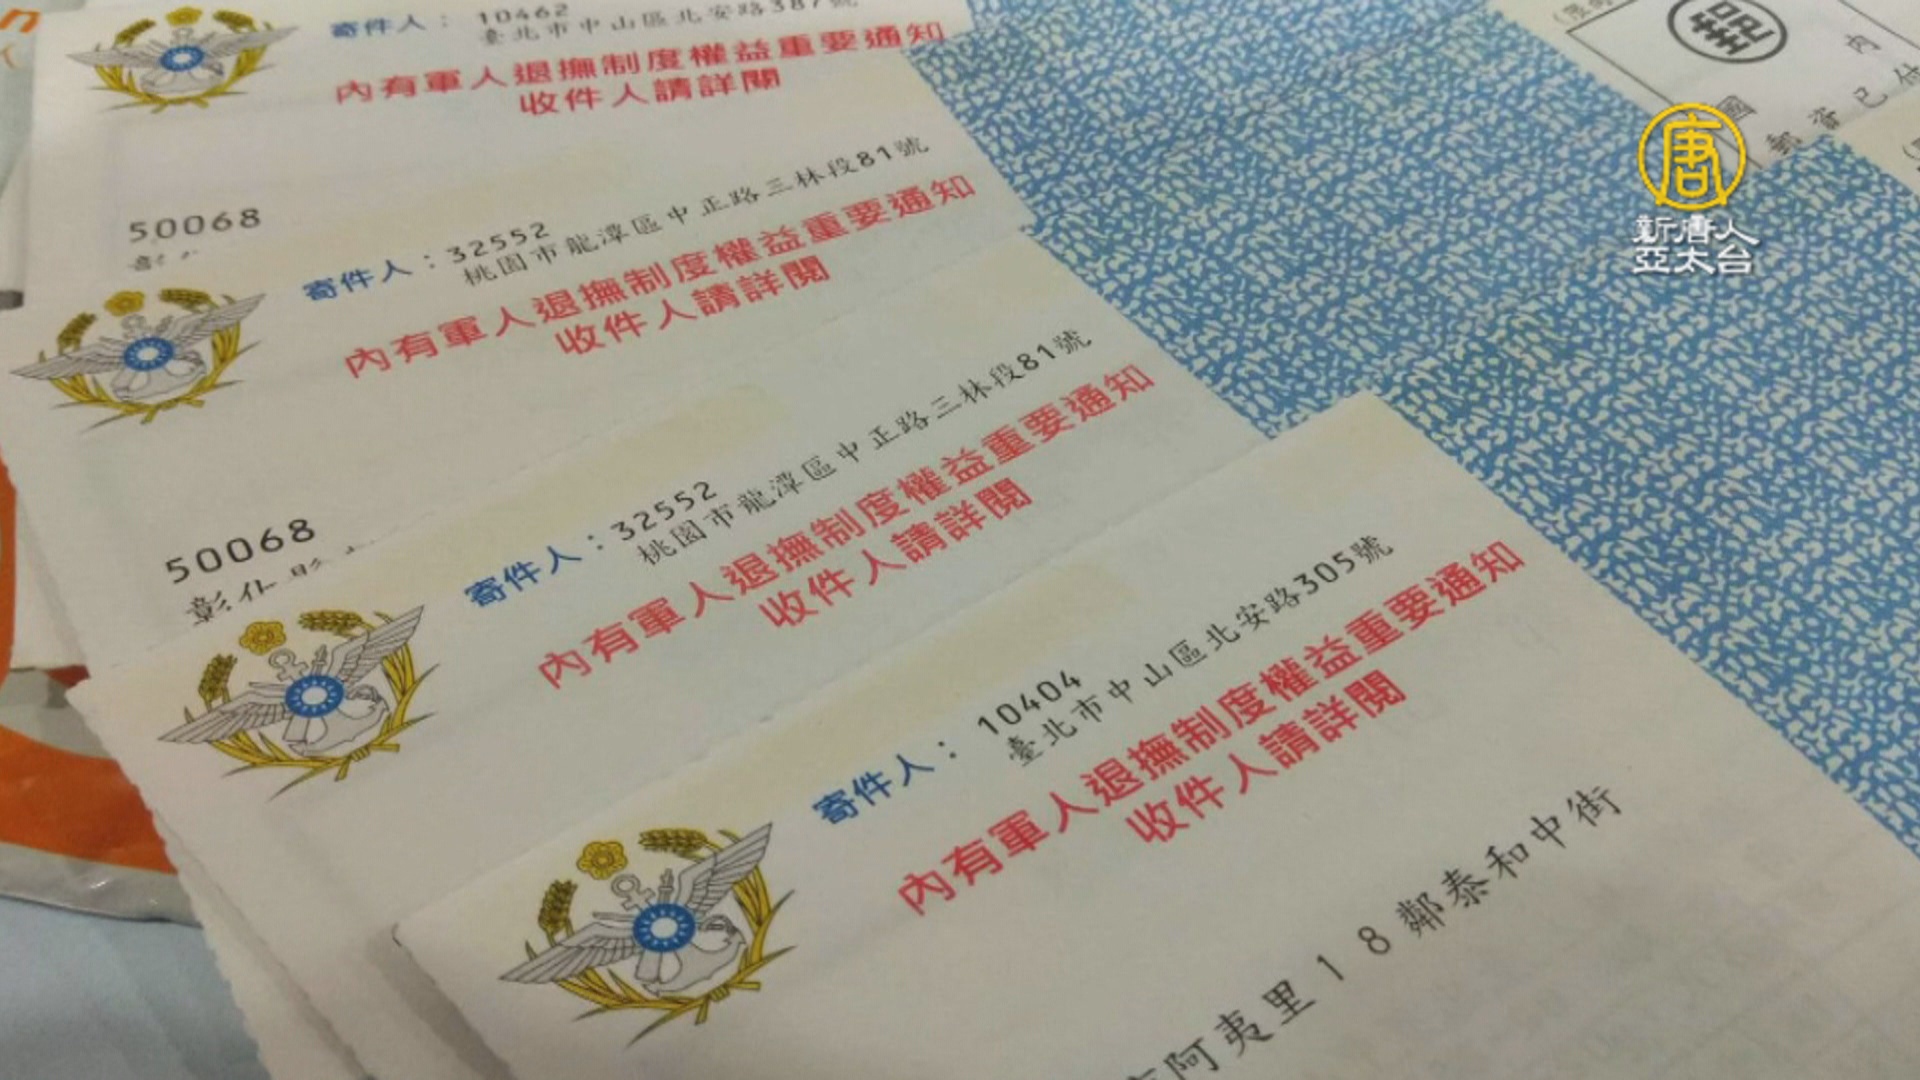 寄件人：10462
臺北市中山區北安路387號
內有軍人退撫制度權益重要通知
收件人請詳閱
50068
寄件人：32552
桃園市龍潭區中正路三林段81號
內有軍人退撫制度權益重要通知
收件人請詳閱
50068
彰化
寄件人：32552
桃園市龍潭區中正路三林段81號
內有軍人退撫制度權益重要通知
收件人請詳閱
寄件人：10404
臺北市中山區北安路305號
內有軍人退撫制度權益重要通知
收件人請詳閱
阿夷里18鄰泰和中街
國內
郵資已付
唐
新唐人
亞太台